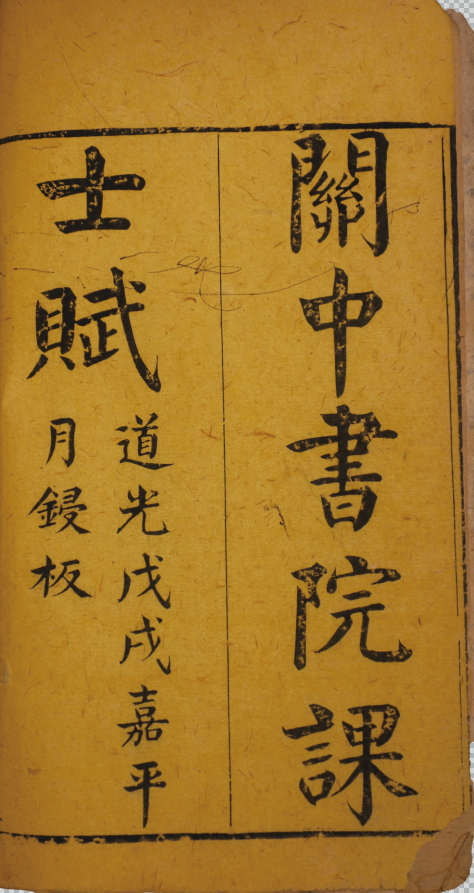 關中書院課
士賦
道光戊戌嘉平
月鋟板